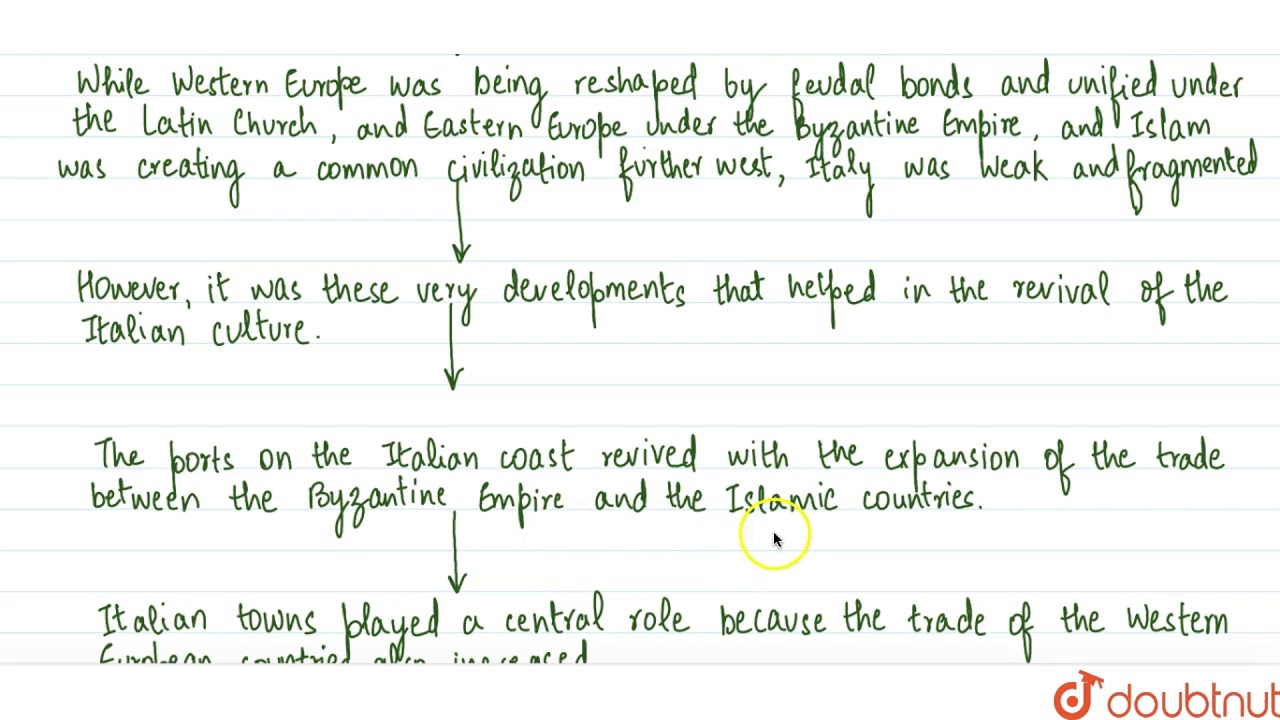 While Western Europe was being reshaped by feudal bonds and unified under
the Latin Church, and Eastern Europe under the Byzantine Empire, and Islam
was creating a common civilization further west, Italy was weak and fragmented
However, it was these very developments that helped in the revival of the
Italian culture.
The ports on the Italian coast revived with the expansion of the trade
between the Byzantine Empire and the Islamic countries.
Italian towns played a central role because the trade of the Western
European countried also increased
doubtnut